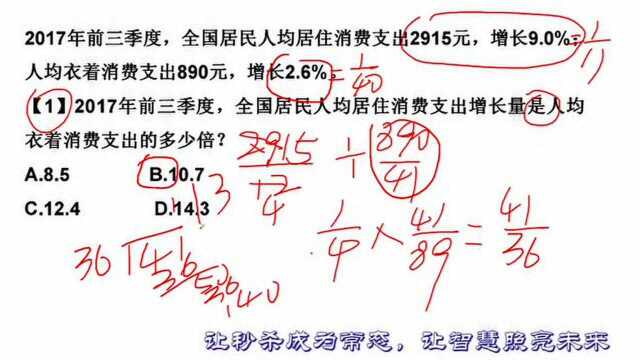 2017年前三季度，全国居民人均居住消费支出2915元，增长9.0%；
1/11
人均衣着消费支出890元，增长2.6%。
=1/40
【1】2017年前三季度，全国居民人均居住消费支出增长量是人均
衣着消费支出的多少倍？
A.8.5 B.10.7
C.12.4 D.14.3
2915 ÷ 890/41
1/4 × 41/89 = 41/36
让秒杀成为常态，让智慧照亮未来